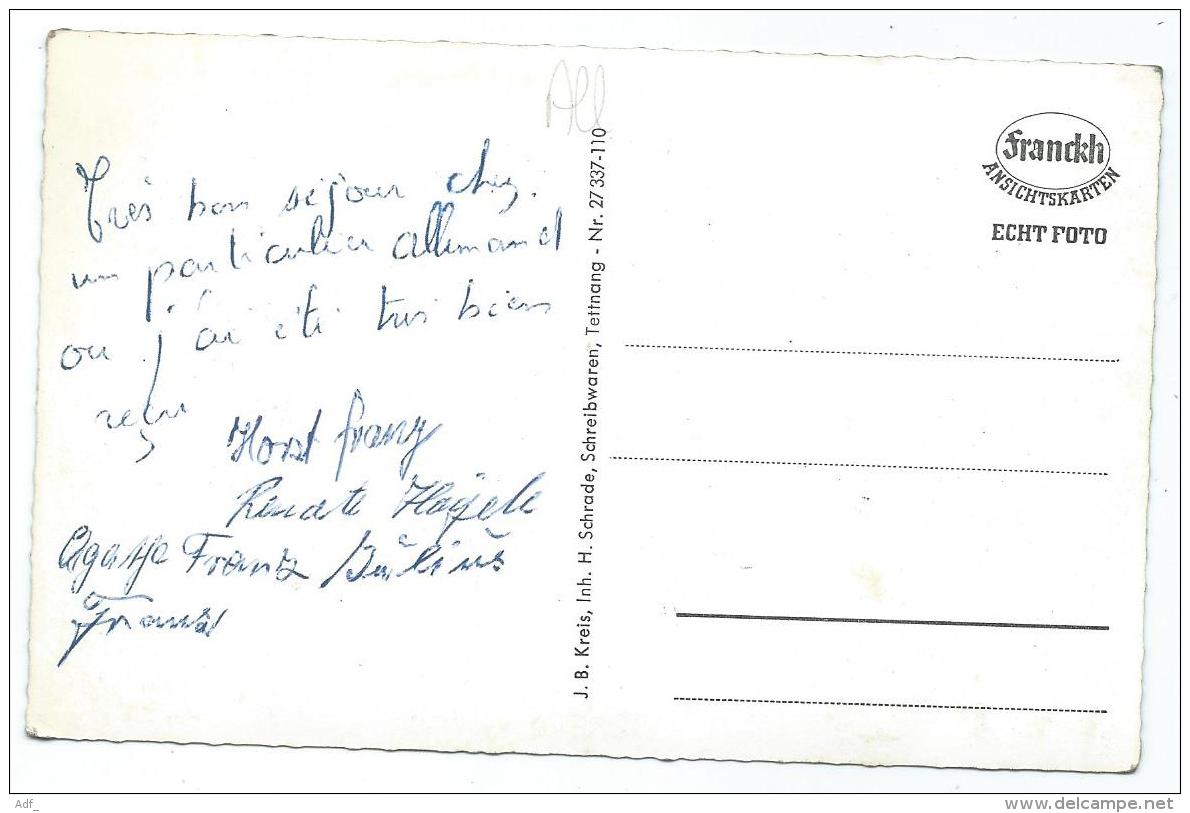 All
Très bon séjour chez
un particulier allemand
ou j'ai été très bien
reçu
Horst franz
Renate Hägele
Agathe Franz Julius
Franz
J. B. Kreis, Inh. H. Schrade, Schreibwaren, Tettnang - Nr. 27 337-110
Franckh
ANSICHTSKARTEN
ECHT FOTO
Adf_
delcampe.net